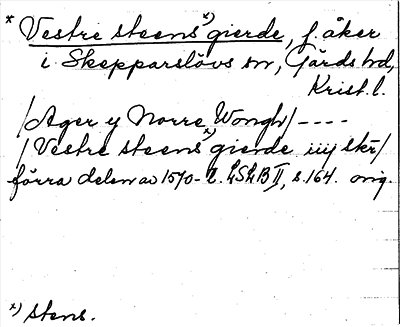 * Vestre steens *) gierde, f. åker
i Skepparslövs sn, Gärds hd,
Krist. l.
/Ager y Norre Wongh/ ----
/Vestre steens *) gierde iiij skr/
förra delen av 1570- t. LSLB II, s. 164. orig.
*) stens.